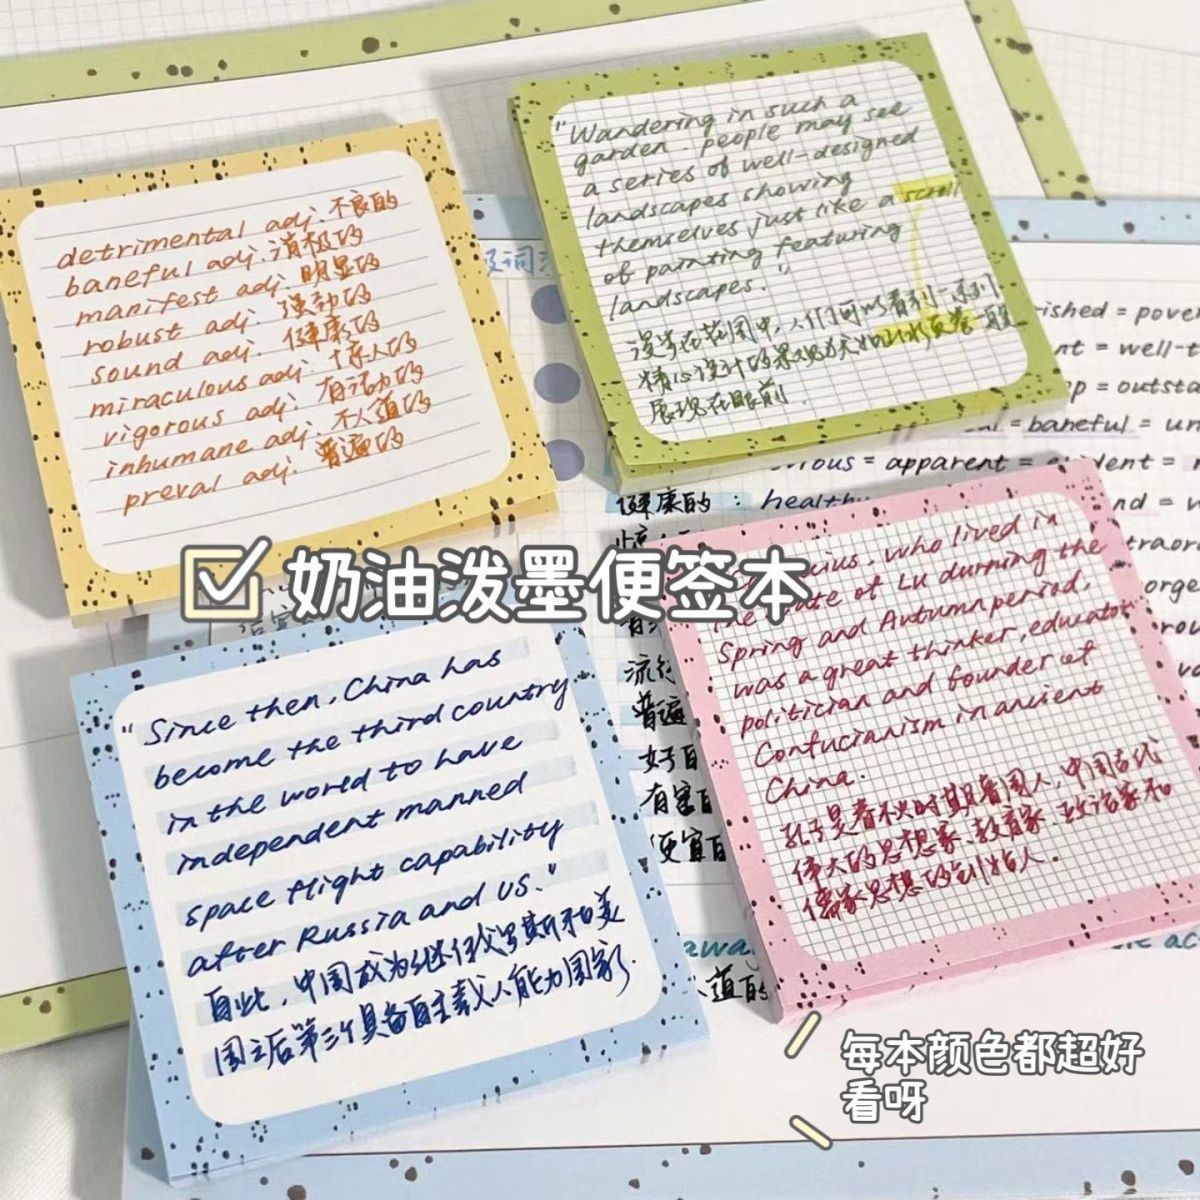 detrimental adj. 不良的
baneful adj. 消极的
manifest adj. 明显的
robust adj. 强劲的
sound adj. 健康的
miraculous adj. 惊人的
vigorous adj. 有活力的
inhumane adj. 不人道的
preval adj. 普遍的
"Wandering in such a
garden. people may see
a series of well-designed
landscapes showing
themselves just like a scroll
of painting featuring
landscapes."
漫步在花园中,人们可以看到一系列
精心设计的景观犹如山水画卷一般
展现在眼前.
rished = pover
nt = well-t
p = outsta
= baneful = un
vious = apparent = evident =
健康的: healthy
nd =
traor
orge
rou
☑ 奶油泼墨便签本
cius, who lived in
the state of Lu durning the
Spring and Autumn period,
was a great thinker, educator
politician and founder of
Confucianism in ancient
China.
孔子是春秋时期鲁国人,中国古代
伟大的思想家、教育家、政治家和
儒家思想的创始人.
"Since then, China has
become the third country
in the world to have
independent manned
space flight capability
after Russia and US."
自此,中国成为继俄罗斯和美
国之后第三个具备自主载人能力国家.
流行
普遍
有害
便宜
人道的
每本颜色都超好
看呀